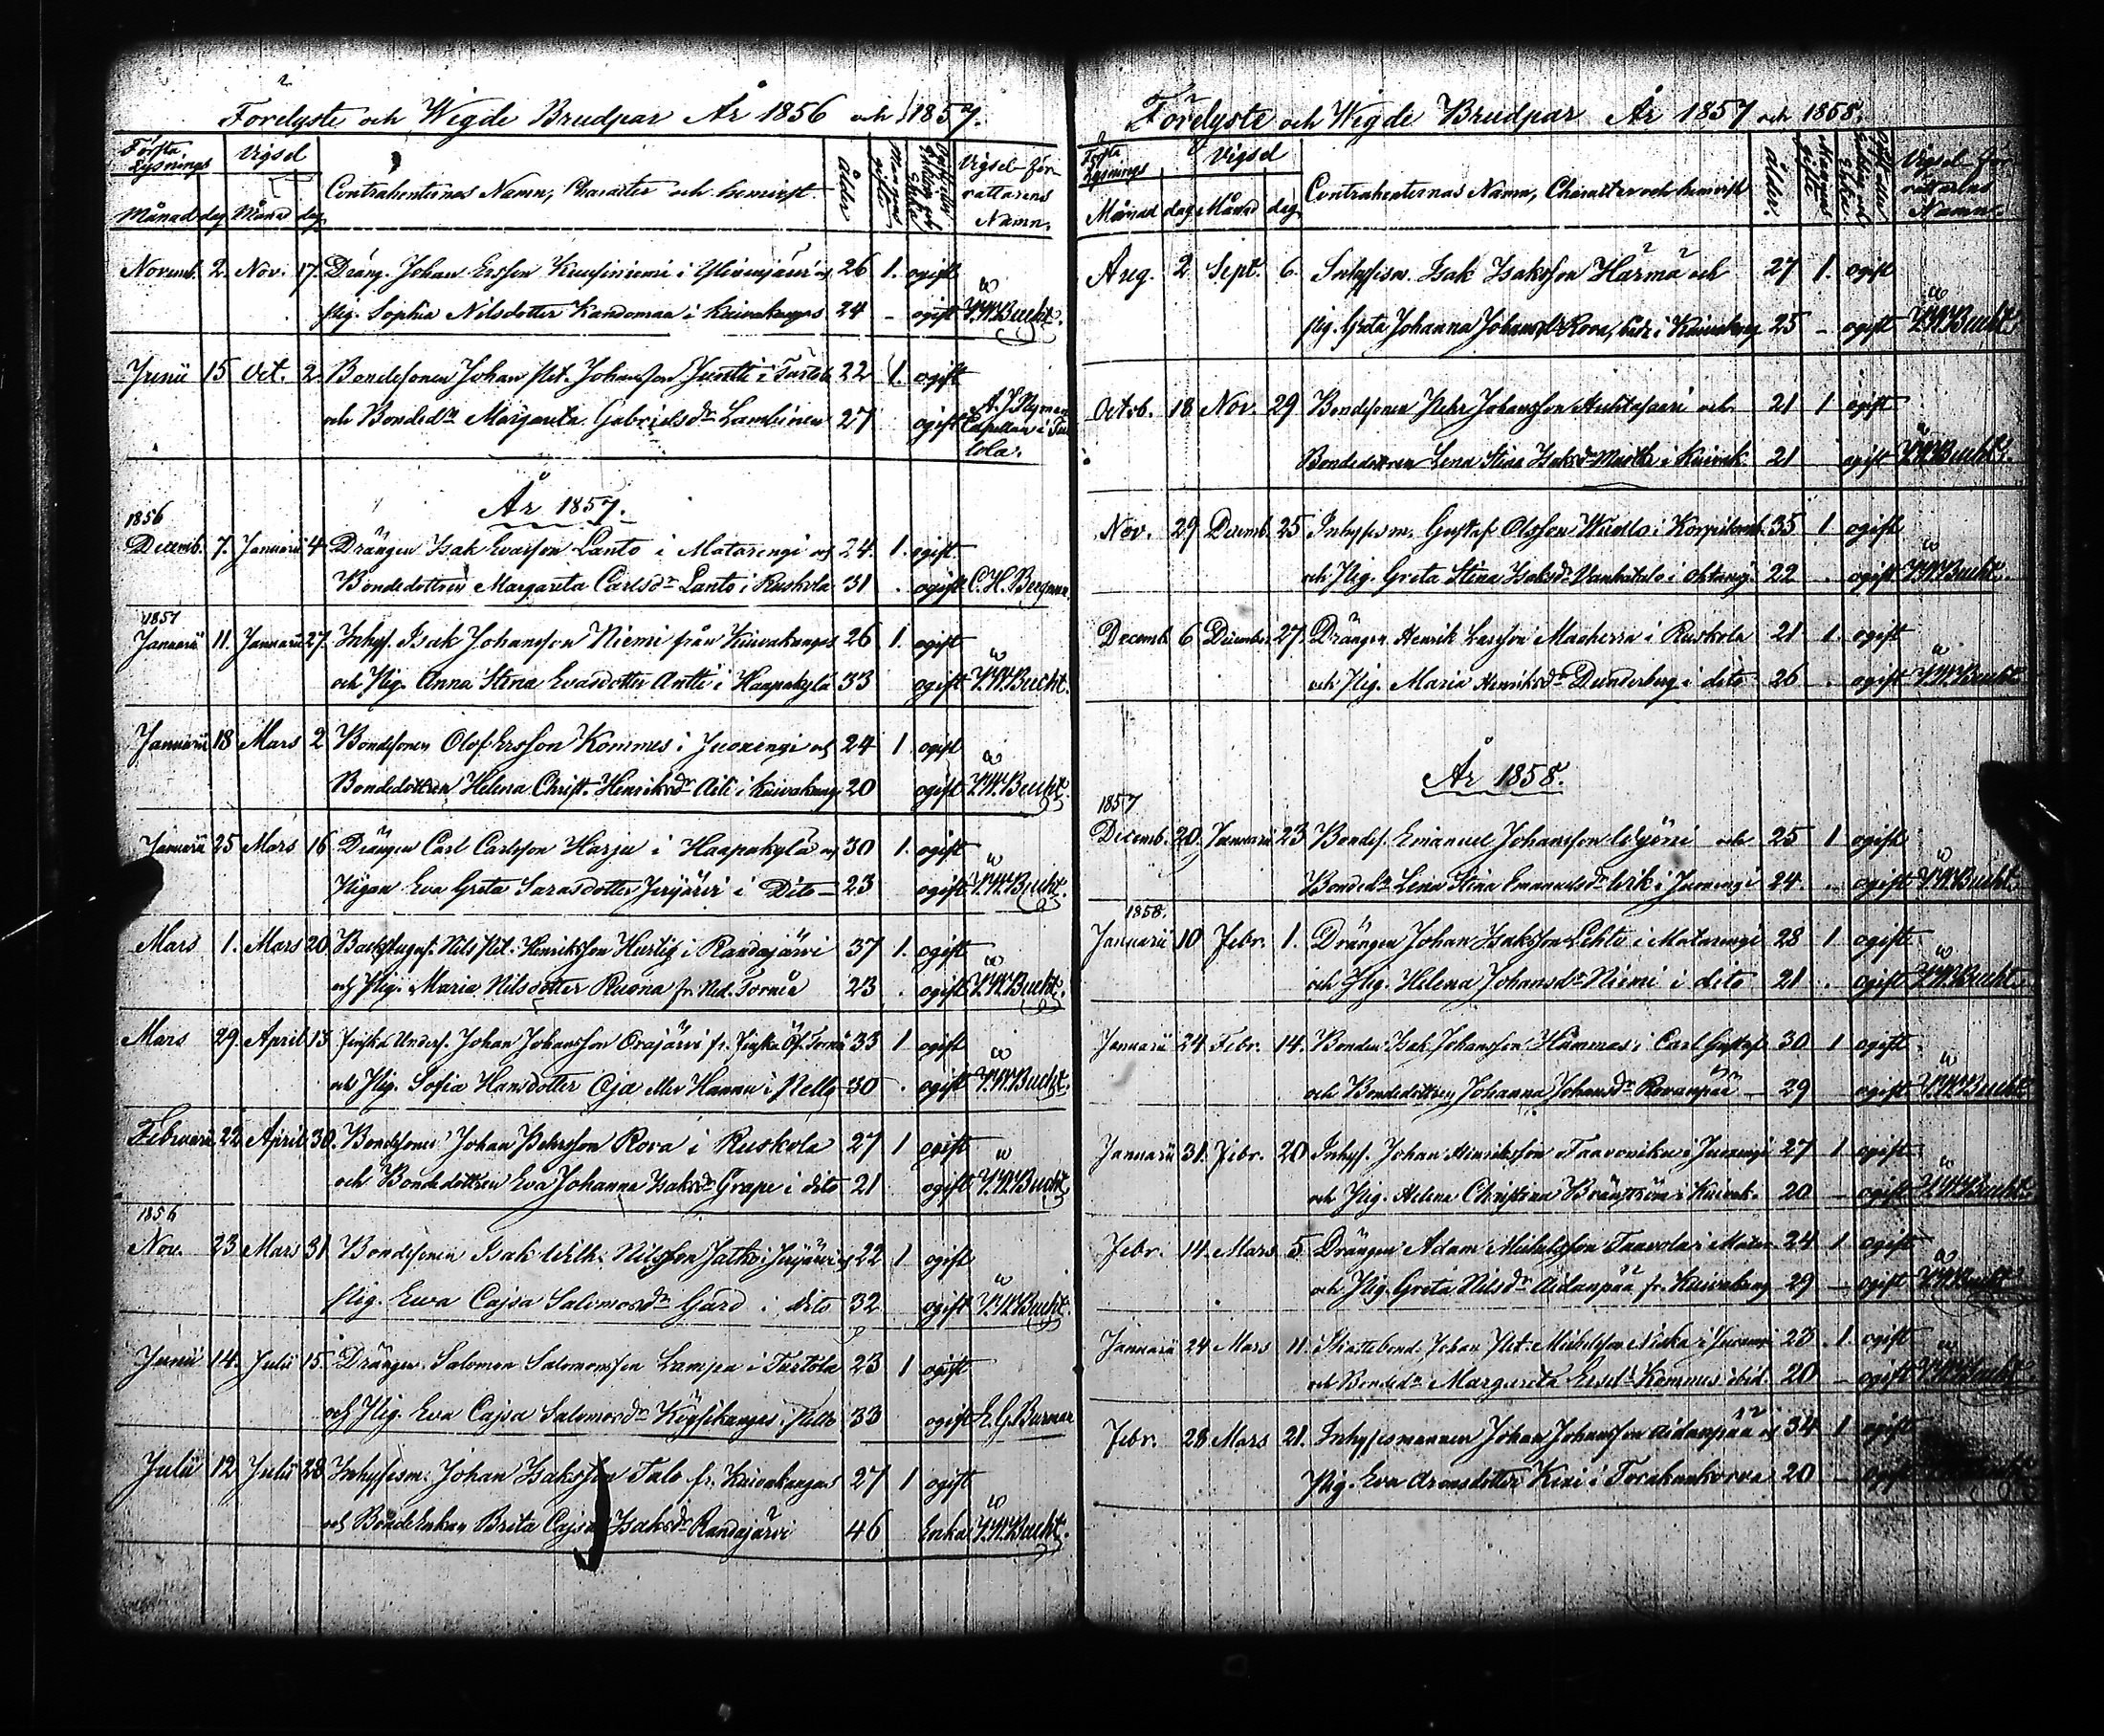 Förelyste och Wigde Brudpar År 1856 och 1857.
Första Lysnings Vigsel Contrahenternas Namn, Character och hemvist. Ålder Vigsel för-
rättarens
Månad dag Månad dag Namn.
Novemb. 2. Nov. 17. Dräng. Johan Ersson i och 26 1. ogift
Pig. Sophia Nilsdotter Kandomaa i Kuivakangas 24 - ogift Bucht.
Junii 15 Oct. 2. Bondesonen Johan Pet. Johansson Juntti i Turtola 22 1. ogift
och Bondedr Margareta Gabrielsdr Lambinen 27 ogift Capellan i Tur
tola.
År 1857.
1856
Decemb. 7. Januarii 4 Drängen Isak Evasson Lanto i Matarengi och 24. 1. ogift
Bondedottren Margareta Carlsdr Lanto i Ruskola 31 . ogift C. H. Bergman.
1857
Januarii 11. Januarii 27. Inhys. Isak Johansson Niemi från Kuivakangas 26 1. ogift
och Pig. Anna Stina Evasdotter Antti i Haapakylä 33 ogift Bucht.
Januarii 18 Mars 2 Bondesonen Olof Ersson Kommes i Juoxengi och 24 1 ogift
Bondedottren Helena Christ. Henriksdr Aili i Kuivakang 20 ogift Bucht.
Januarii 25 Mars 16. Drängen Carl Carlsson Harju i Haapakylä och 30 1. ogift
Pigan Eva Greta Sarasdotter Jerijärvi i Dito 23 ogift Bucht.
Mars 1. Mars 20. Nils Pet. Henriksson Hurtig i Randajärvi 37 1. ogift
och Pig. Maria Nilsdotter Ruona fr. Ned. Torneå 23 . ogift Bucht.
Mars 29. April 13 Finska Unders. Johan Johansson Orajärvi fr. Finska Öf. Torneå 33 1 ogift
och Pig. Sofia Hansdotter Oja eller Hannu i Pello 30 . ogift Bucht.
Februarii 22. April 30. Bondesonen Johan Pehrsson Rova i Ruskola 27 1 ogift
och Bondedottren Eva Johanna Isaksdr Grape i dito 21 ogift Bucht.
1856
Nov. 23 Mars 31 Bondesonen Isak Wilh. Nilsson Jatko i Jerijärvi och 22 1 ogift
Pig. Ewa Cajsa Salomonsdr Gärd i dito 32 ogift Bucht.
Junii 14. Julii 15. Drängen Salomon Salomonsson Lampa i Turtola 23 1 ogift
och Pig. Eva Cajsa Salomonsdr i Pello 33 ogift E. G. Burman
Julii 12 Julii 28 Inhysesm. Johan Isaksson Talo fr. Kuivakangas 27 1 ogift
och Bondenkan Brita Cajsa Isaksdr Randajärvi 46 Enka Bucht.
Förelyste och Wigde Brudpar År 1857 och 1858.
Första Lysnings Vigsel Contrahenternas Namn, Character och hemvist Ålder. Vigsel för-
rättarens
Månad dag Månad dag Namn.
Aug. 2 Sept. 6. Inhysesm. Isak Isaksson Härmä och 27 1. ogift
Pig. Greta Johanna Johansdr Rova, både i Kuivakang 25 - ogift Bucht.
Octob. 18 Nov. 29 Bondesonen Pehr Johansson och 21 1 ogift
Bondedottren Lena Stina Isaksdr i Kuivak. 21 ogift Bucht.
Nov. 29 Decemb. 25 Inhysesm. Gustaf Olsson i Korpilomb. 35 1 ogift
och Pig. Greta Stina Isaksdr Vanhatalo i 22 . ogift Bucht.
Decemb 6 December 27. Drängen Henrik Larsson i Ruskola 21 1. ogift
och Pig. Maria Henriksdr Dunderberg i dito 26 . ogift Bucht
År 1858.
1857
Decemb. 20. Januarii 23 Bondes. Emanuel Johansson och 25 1 ogift
Bondedr Lena Stina Emanuelsdr Erik i Juoxengi 24 . ogift Bucht.
1858.
Januarii 10 Febr. 1. Drängen Johan Isaksson Lehto i Matarengi 28 1 ogift
och Pig. Helena Johansdr Niemi i dito 21 . ogift Bucht.
Januarii 24 Febr. 14. Bonden Isak Johansson i Carl Gustafs 30 1 ogift
och Bondedottren Johanna Johansdr Rovanpää 29 ogift Bucht
Januarii 31. Febr. 20 Inhys. Johan Henriksson i Juoxengi 27 1 ogift
och Pig. Helena Christina Bränström i Kuivak. 20 - ogift Bucht.
Febr. 14. Mars 5 Drängen Adam Michelsson Taavola i Matar. 24 1 ogift
och Pig. Greta Nilsdr Aidanpää fr. Kuivakang 29 - ogift Bucht
Januarii 24 Mars 11. Johan Pet. Michelsson Niska i Juoxengi 23 1. ogift
och Bondedr Margareta Ersdr Kommes ibid. 20 - ogift Bucht
Febr. 28 Mars 21. Inhysesmannen Johan Johansson Aidanpää och 34 1 ogift
Pig. Eva Aronsdotter Kexi i 20 - ogift